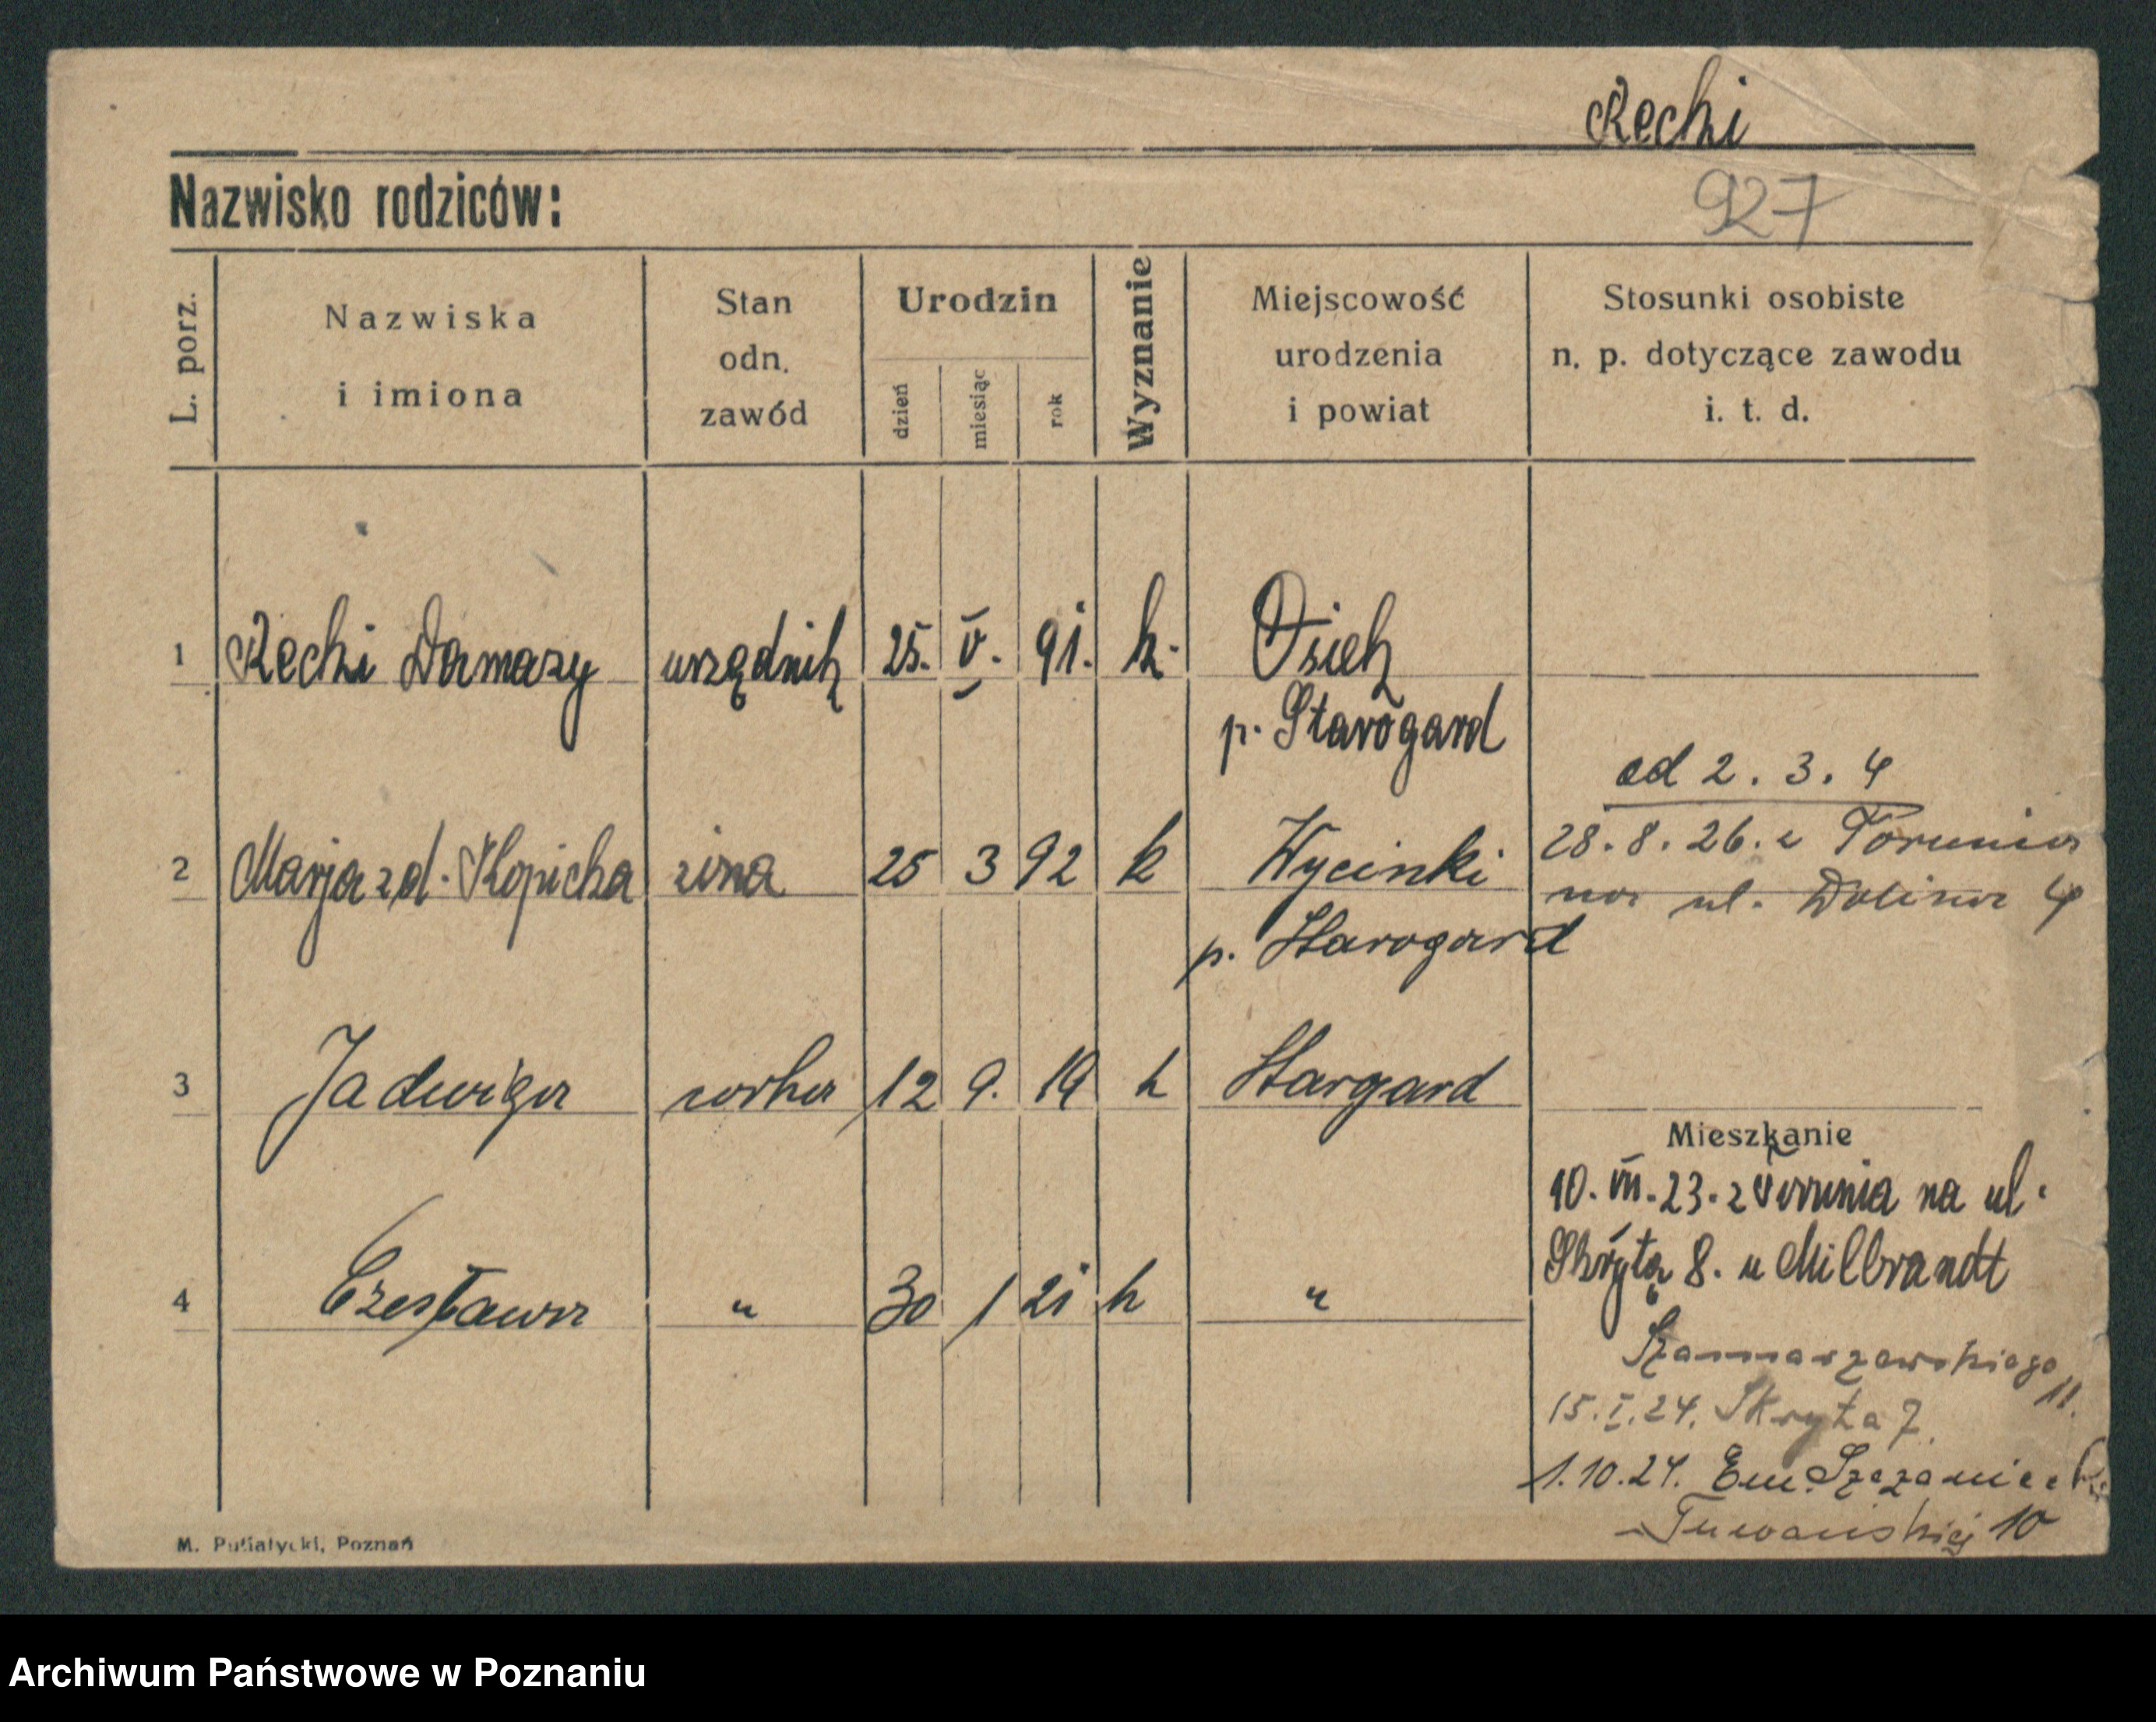 Recki
Nazwisko rodziców:
927
L. porz.
Nazwiska
i imiona
Stan
odn.
zawód
Urodzin
dzień
miesiąc
rok
Wyznanie
Miejscowość
urodzenia
i powiat
Stosunki osobiste
n. p. dotyczące zawodu
i. t. d.
1 Recki Damazy urzędnik 25. V. 91. k. Osiek
p. Starogard
od 2. 3. 4
2 Marja z d. Kopicka żona 25 3 92 k Wycinki
28.8.26. z Torunia
na ul. Dolina 4
p. Starogard
3 Jadwiga córka 12 9. 19 k Stargard
Mieszkanie
10. VII. 23. z Torunia na ul.
Skrytą 8. u Milbrandt
4 Czesława " 30 1 21 k "
11.
15.I.24. Skryta 7.
1.10.24. Em.
10
M. Putiatycki, Poznań
Archiwum Państwowe w Poznaniu